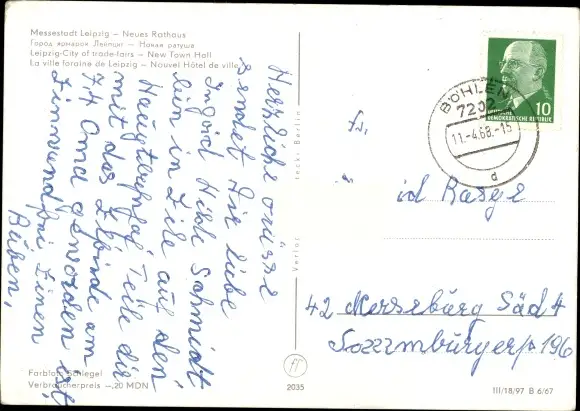 Messestadt Leipzig – Neues Rathaus
Город ярмарок Лейпциг – Новая ратуша
Leipzig-City of trade-fairs – New Town Hall
La ville foraine de Leipzig – Nouvel Hôtel de ville
Herzliche Grüsse
sendet Dir liebe
Ingrid Hilde Schmidt
bin in Eile auf den
Hauptbahnhof Teile dir
mit das Elfride am
7.4 Oma geworden ist
Buben,
BÖHLEN
7202
11.-4.68.-15
d
10
DEMOKRATISCHE REPUBLIK
Fr.
id Rasge
42 Merseburg Süd 4
196
Farbfoto Schlegel
Verbraucherpreis –,20 MDN
2035
Verlag
Berlin
III/18/97 B 6/67